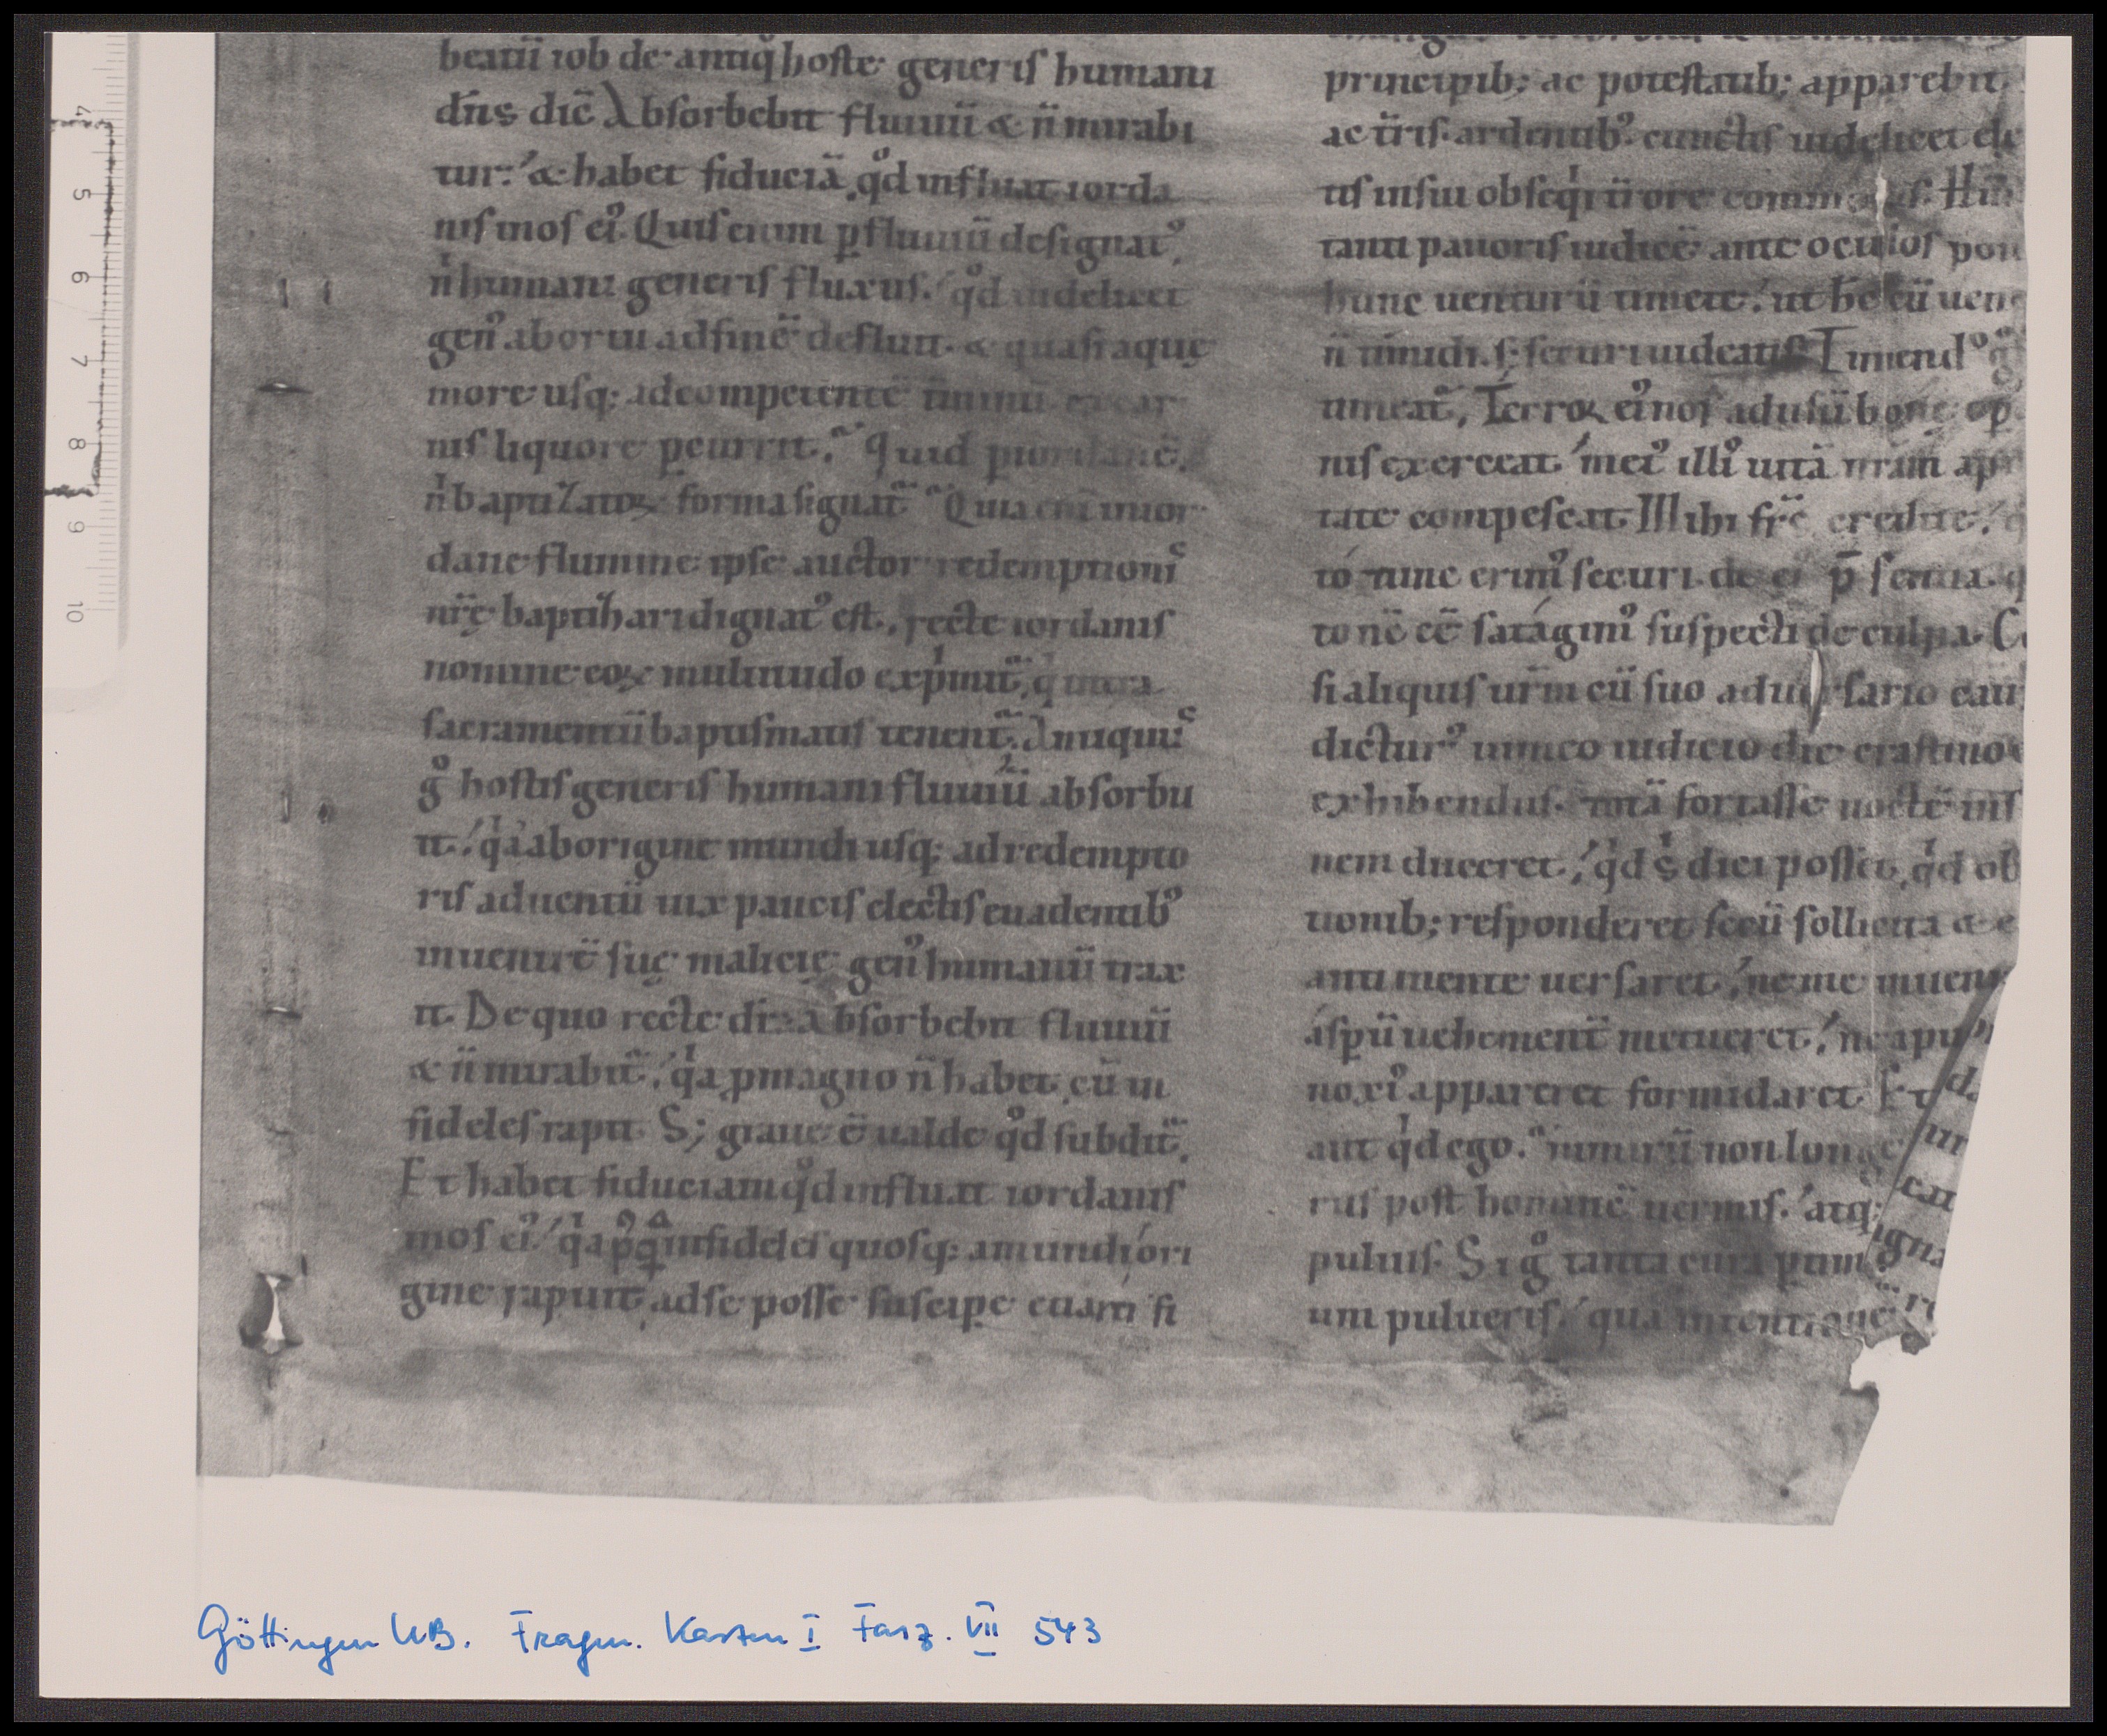 beatū iob de antiq̊ hoste generis humani
dn̄s dic̄ Absorbebit fluuiū & n̄ mirabi
tur: & habet fiduciā, qd̊ influat iorda
nis in os ei᷒. Quis enim p fluuiū designat᷒,
n̄ humani generis fluxus. qd̊ uidelicet
gen᷒ ab ortu ad finē defluit. & quasi aquę
more usq; ad competentē t̄minū ex car
nis liquore pcurrit. Quid p iordanē,
n̄ baptizatoꝝ forma signat̄ Quia eni in ior
dane flumine ipse auctor redemptioni
nr̄ę baptizari dignat᷒ est, recte iordanis
nomine eoꝝ multitudo exp̍mit̄, q̍ intra
sacramentū baptismatis tenent̄. Antiquu
g̊ hostis generis humani fluuiū absorbu
it. q̍a ab origine mundi usq; ad redempto
ris aduentū uix paucis electis euadentib᷒
in uentrē suę malicię gen᷒ humanū trax
it. De quo recte dr̄ absorbebit fluuiū
& n̄ mirabit̄. q̍a p magno n̄ habet, cū in
fideles rapit. S; graue ē ualde qd̊ subdit̄,
Et habet fiduciam qd̊ influat iordanis
in os ei᷒. q̍a p᷒q̄ infideles quosq; a mundi ori
gine rapuit, ad se posse suscipe etiam fi
principib; ac potestatib; apparebit.
ac t̄ris ardentib᷒. cunctis uidelicet ele
tis in sui obseq̍i t̄rore commotis. Hun
tanti pauoris iudicē ante oculos pon
hunc uenturū timete. ut hc̄ cū uen
n̄ timidi. s; securi uideatis Timend᷒ g̊
timeat̄, Terror ei᷒ nos ad usū bone op
nis exerceat met᷒ illi᷒ uitā nrām a p
tate compescat. Mihi fr̄s credite.
to tunc erim᷒ securi de ei p̄sentia. q
to nc̄ ēē satagim᷒ suspecti de culpa. C
si aliquis ur̄m cū suo aduersario cau
dictur᷒ in meo iudicio die crastino
exhibendus. totā fortasse noctē ins
nem duceret. qd̍ s dici posset, qd̍ ob
tionib; responderet secū sollicita & e
anti mente uersaret. ne me inueni
aspū uehement̄ metueret. ne apu
noxi᷒ appareret formidaret Et
aut qd̍ ego. nimirū non longe
rus post hominē uermis. atq;
puluis. Si g̊ tanta cura ptim
um pulueris. qua intentione
Göttingen UB. Fragm. Kasten I Fasz. VII 543
4
5
6
7
8
9
10